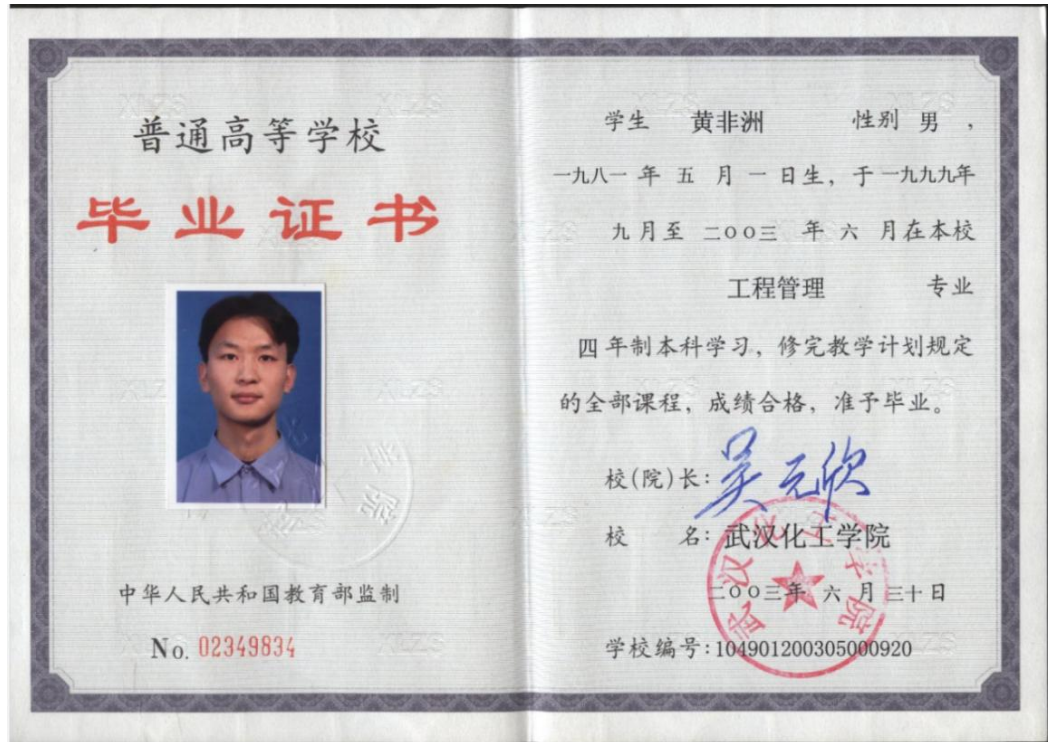 普通高等学校
毕业证书
中华人民共和国教育部监制
No. 02349834
学生 黄非洲 性别 男 ,
一九八一 年 五 月 一 日生, 于 一九九九年
九 月至 二〇〇三 年 六 月在本校
工程管理 专业
四 年制本科学习, 修完教学计划规定
的全部课程, 成绩合格, 准予毕业。
校(院)长: 吴元欣
校 名: 武汉化工学院
二〇〇三年 六 月 三十日
学校编号: 104901200305000920
武汉化工学院
XLZS